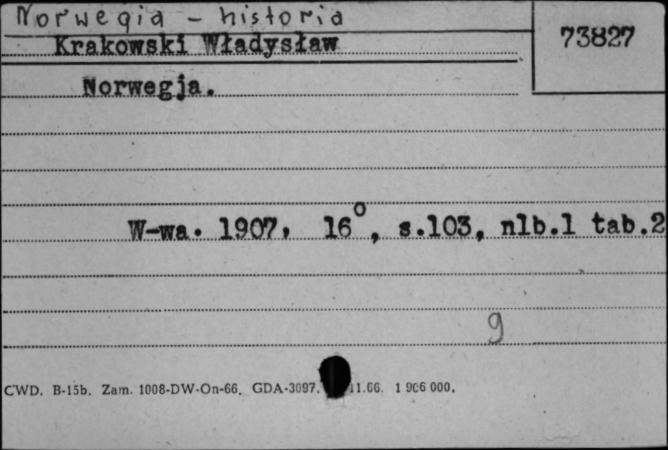 Norwegia - historia
Krakowski Władysław
73827
Norwegja.
W-wa. 1907, 16°, s.103, nlb.1 tab.2
9
CWD. B-15b. Zam. 1008-DW-On-66. GDA-3097. 11.66. 1 906 000.